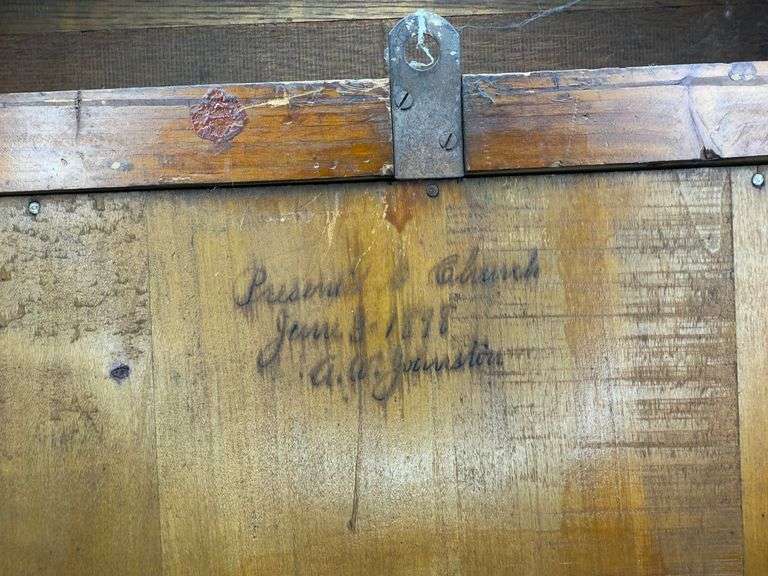 Presented to Church
June 3 1898
A. W. Johnston